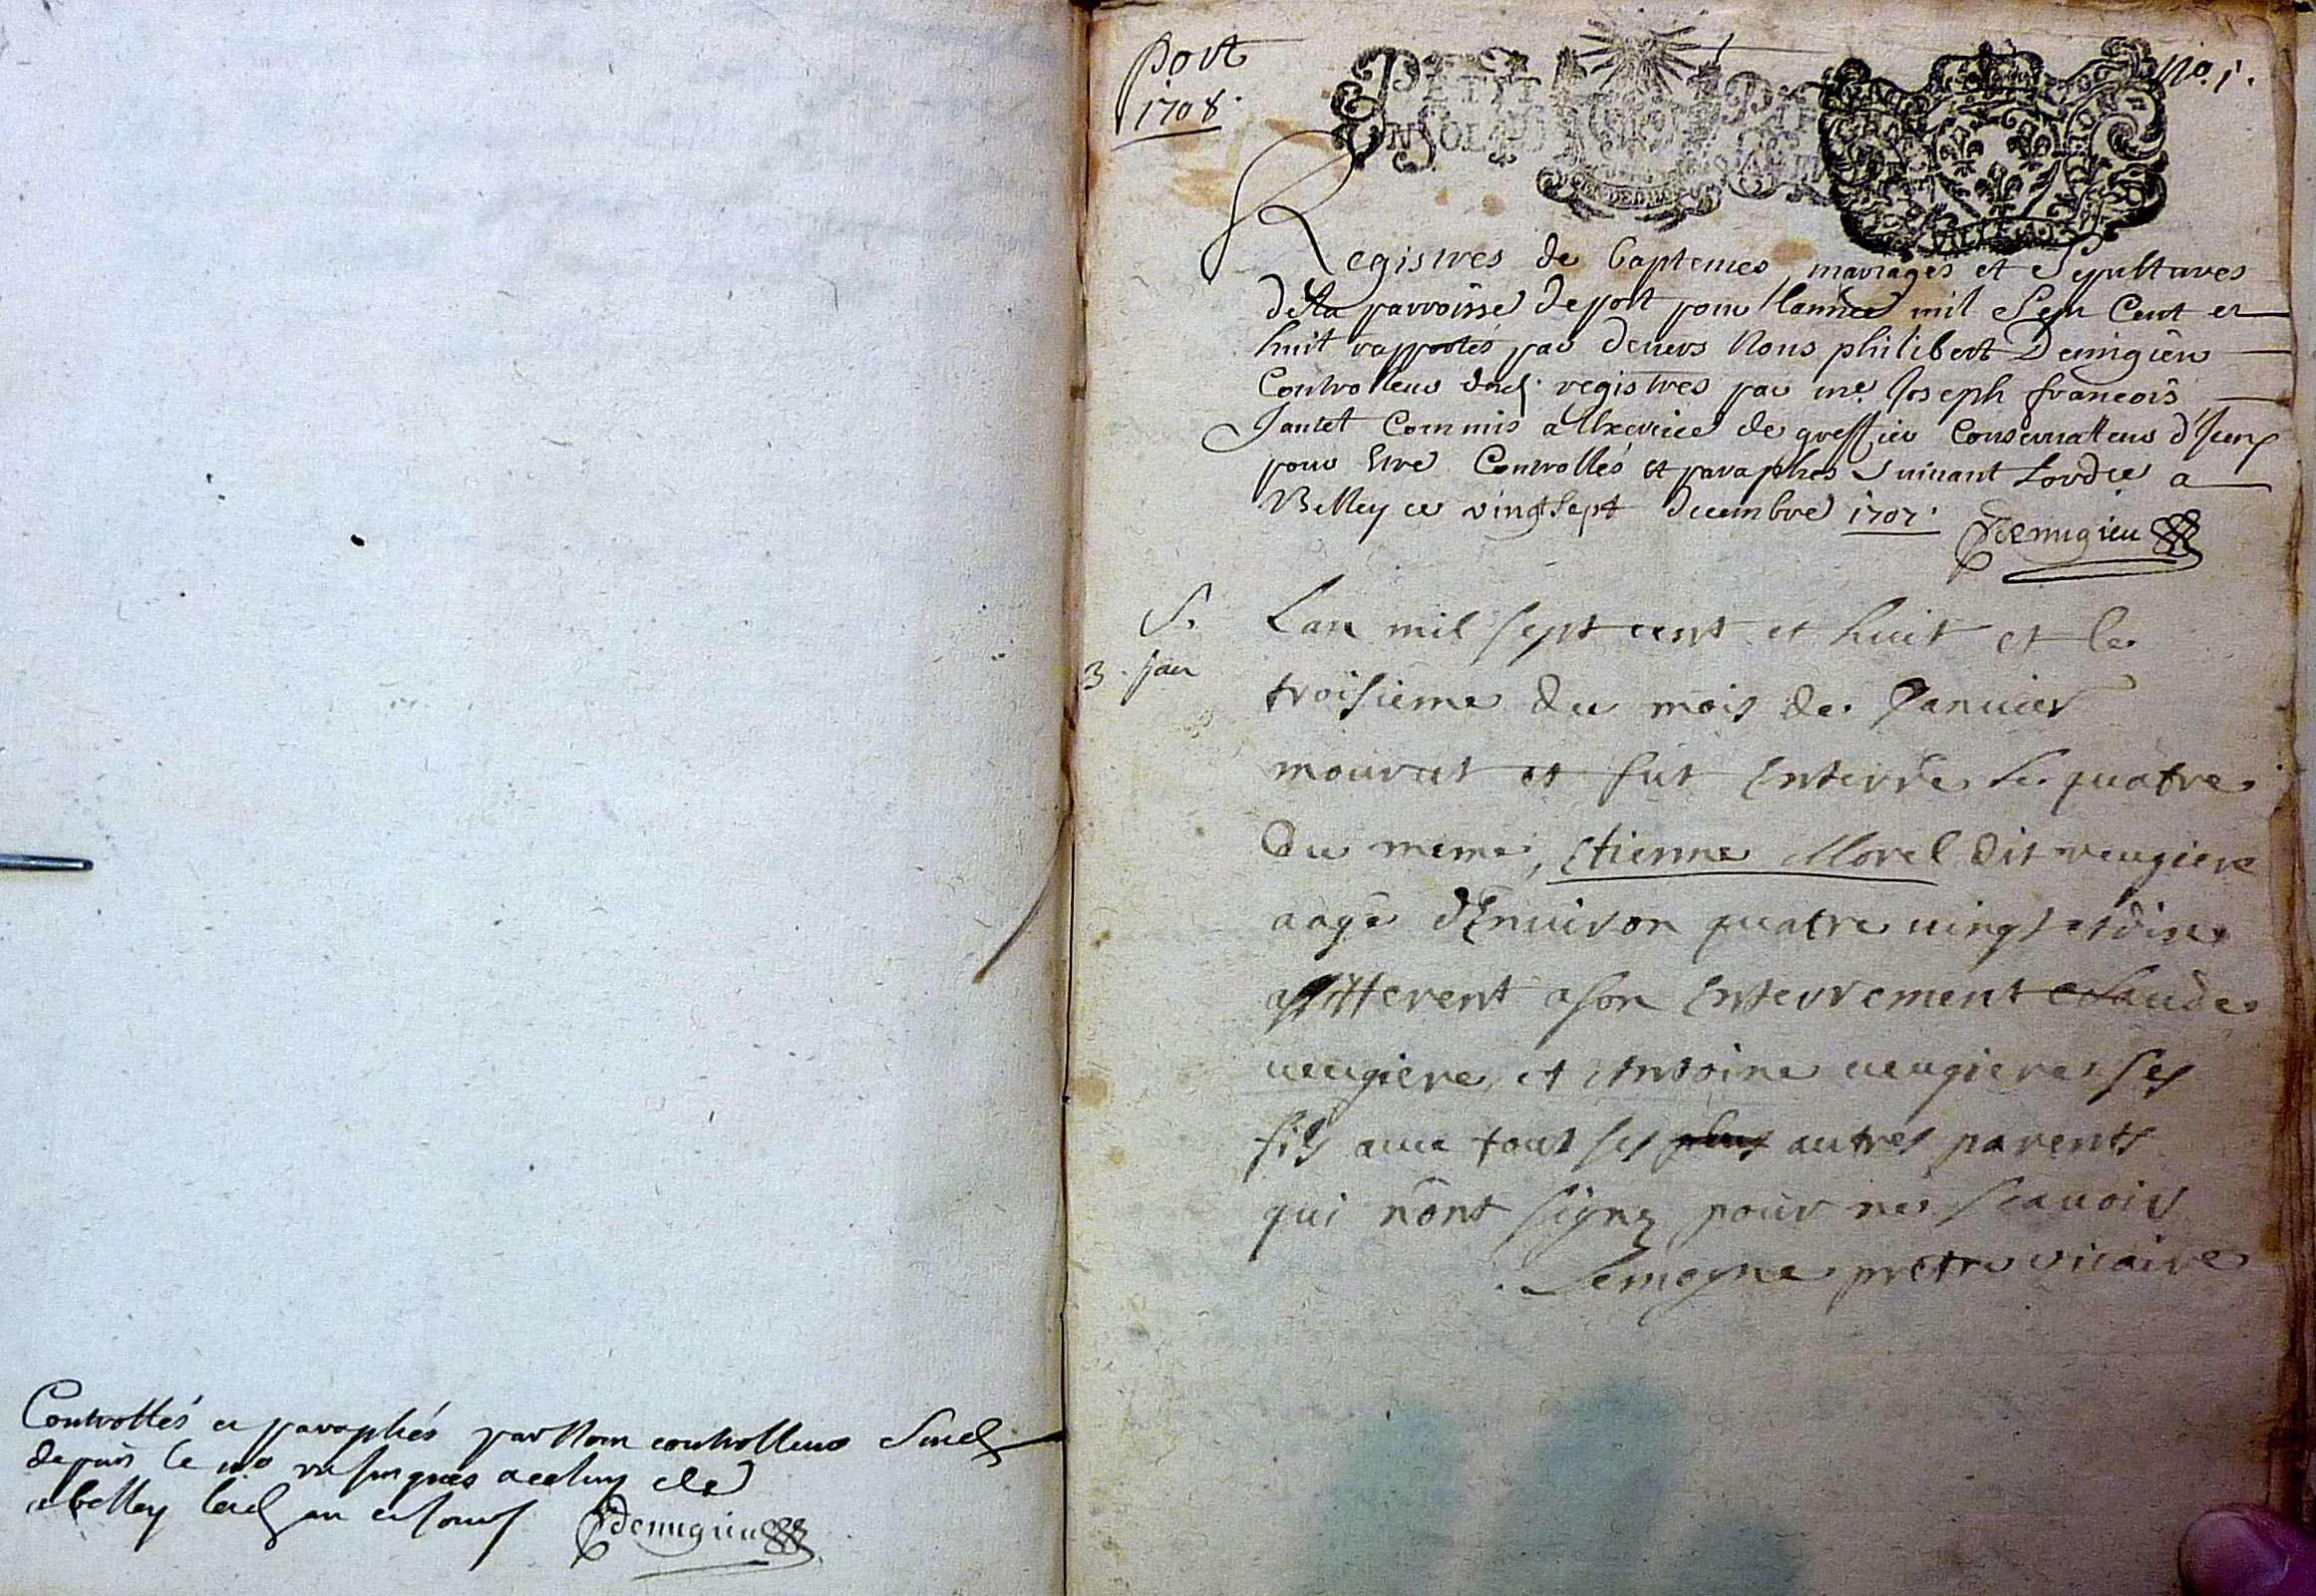 Controllés et paraphés par Nous controlleur
depuis le no un jusques a celuy de
a belley an et jour Demigieu
Port
1708.
No. 1.
Registres de baptemes, mariages et Sepultures
de la parroisse de port pour l'année mil Sept Cent et
huit rapportés par devers Nous philibert Demigieu
Controlleur desd. registres par me. Joseph francois
Jantet Commis a l'Exercice de greffier Conservatteur d'Iceux
pour Etre Controllés et paraphés Suivant Lordre a
Belley ce vingt Sept decembre 1707. Demigieu
S. Lan mil sept cent et huit et le
3. jan troisieme du mois de Januier
mourut et fut Enterré le quatre
du meme, Etienne Morel dit veugiere
aagé d'Enuiron quatre uingt et dix
assisterent a son Enterrement Claude
ueugiere et Antoine ueugiere ses
fils auec tout ses plus autres parents
qui n'ont signez pour ne scauoir
Lemoyne pretre vicaire